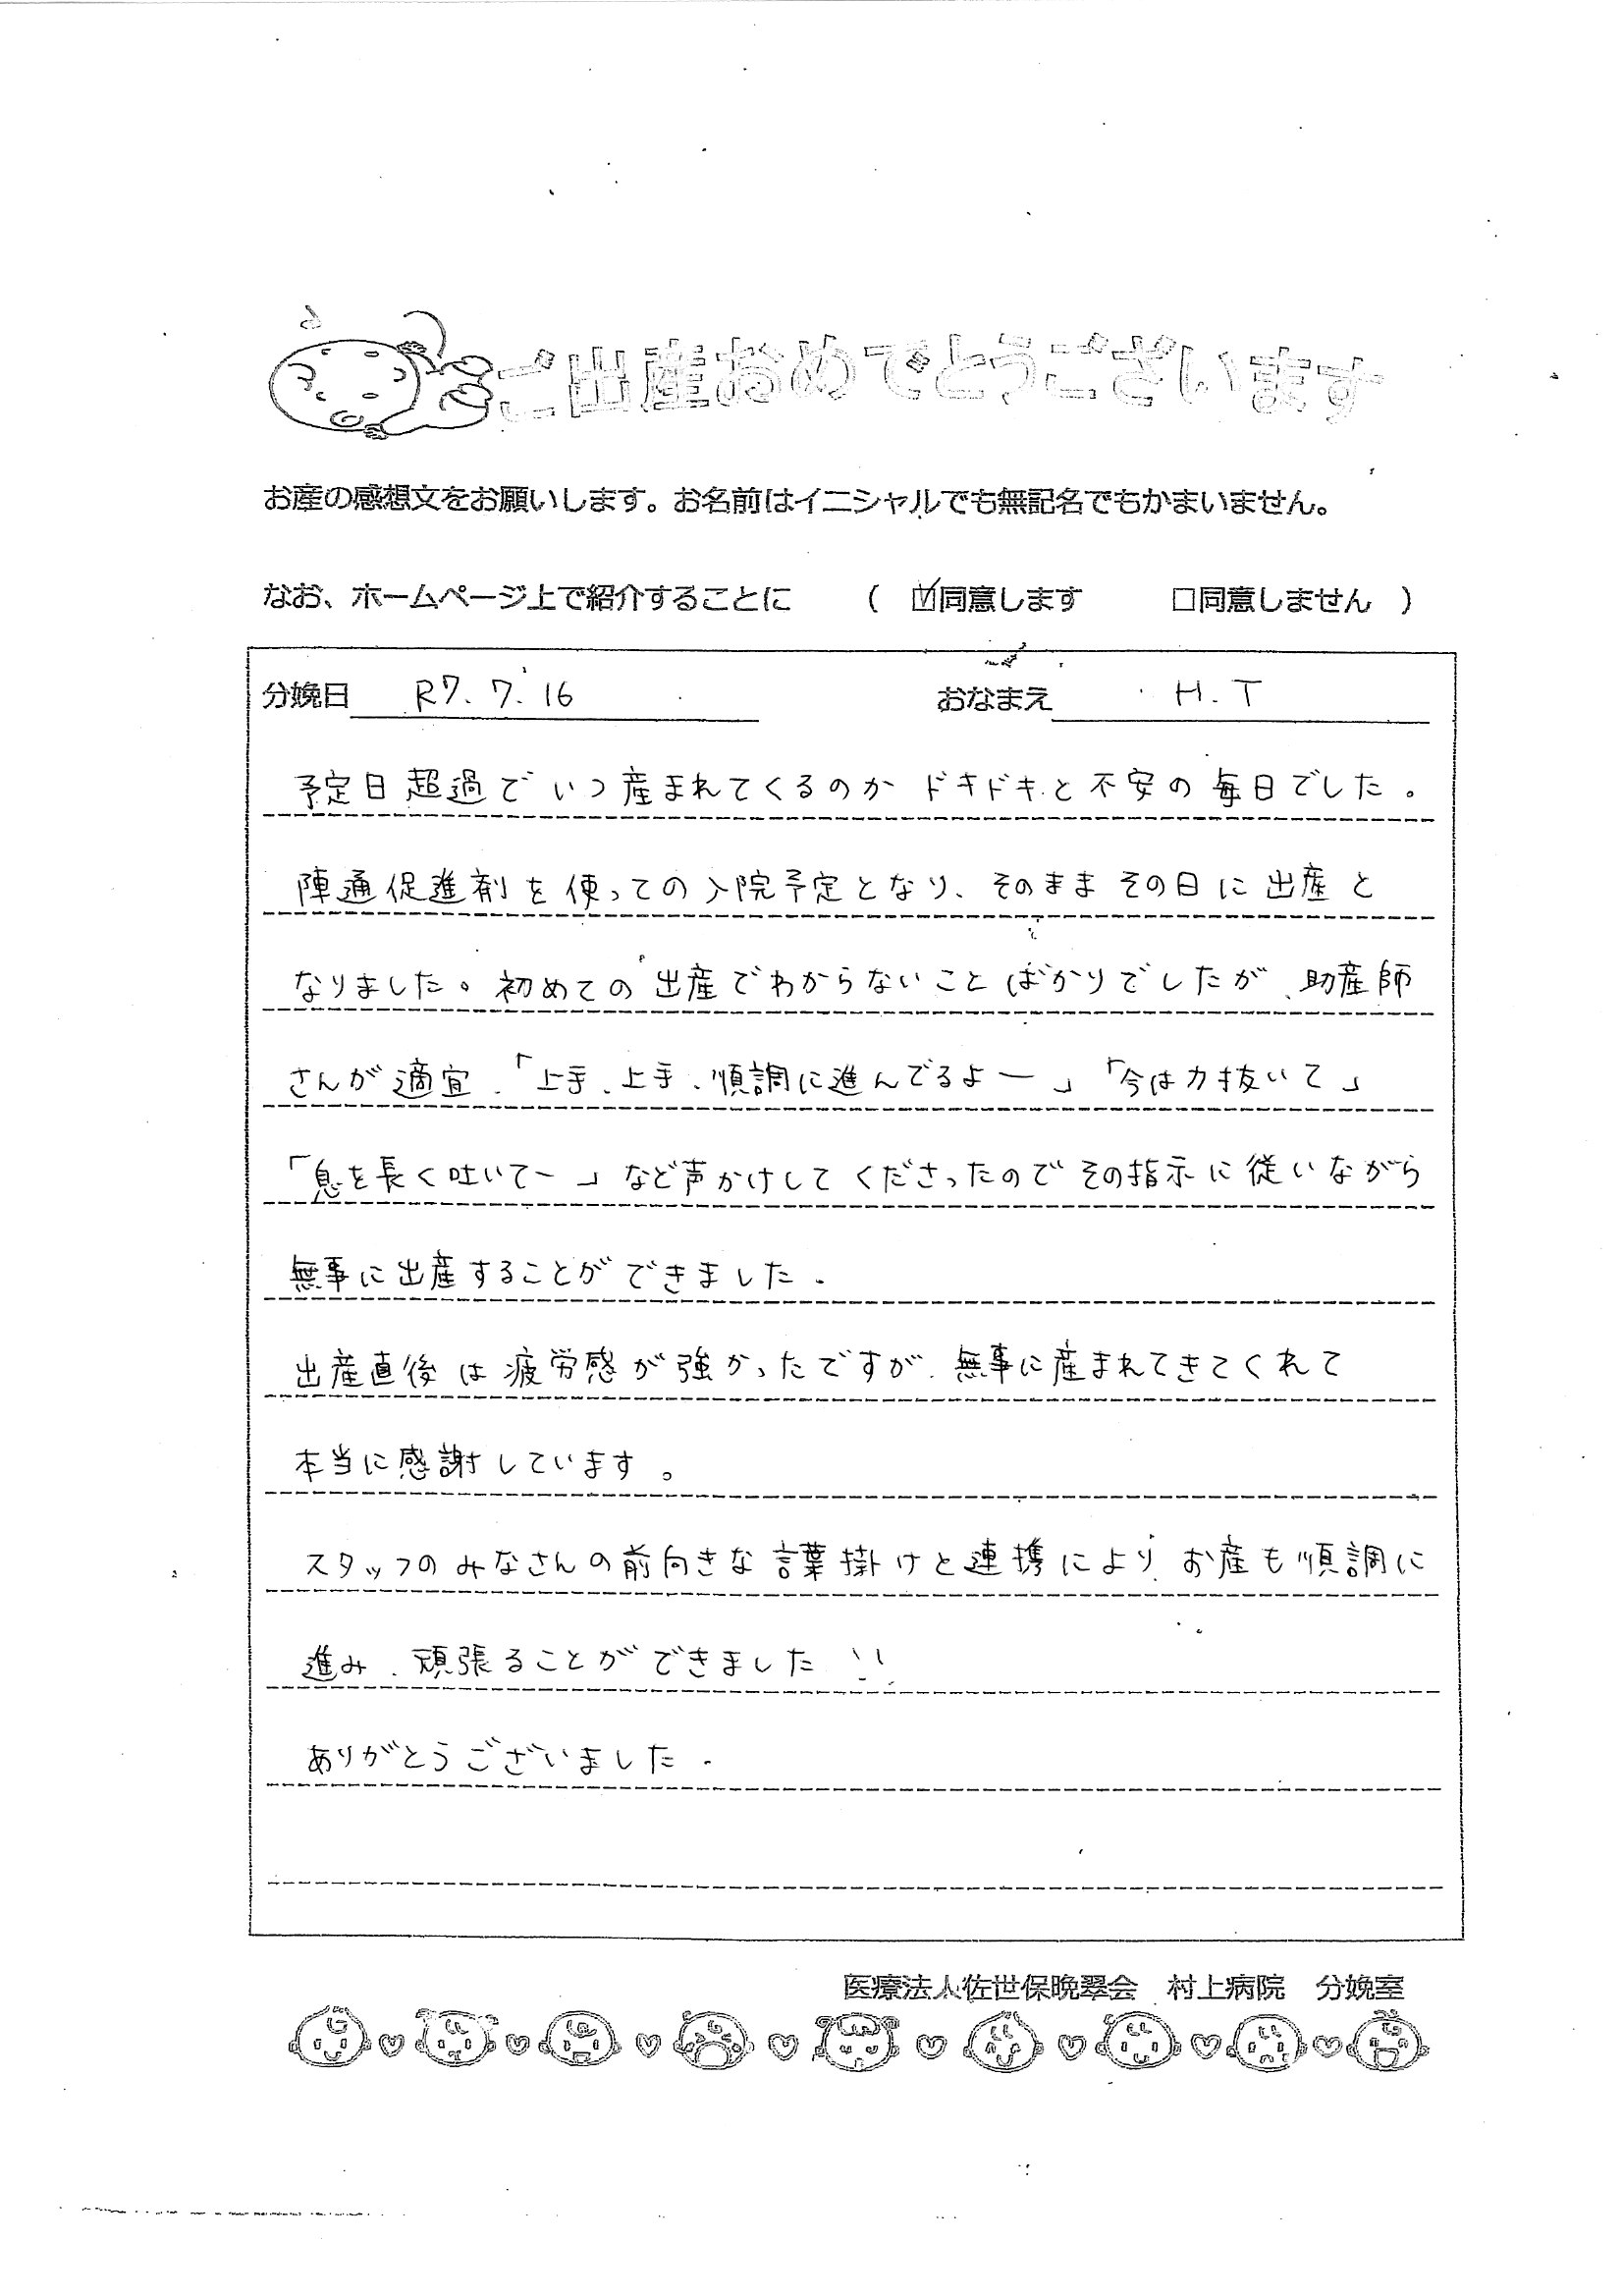 ご出産おめでとうございます
お産の感想文をお願いします。お名前はイニシャルでも無記名でもかまいません。
なお、ホームページ上で紹介することに ( ☑同意します □同意しません )
分娩日 R7.7.16 おなまえ H.T
予定日超過でいつ産まれてくるのかドキドキと不安の毎日でした。
陣通促進剤を使っての入院予定となり、そのままその日に出産と
なりました。初めての出産でわからないことばかりでしたが、助産師
さんが適宜、「上手、上手、順調に進んでるよー」「今は力抜いて」
「息を長く吐いてー」など声かけしてくださったのでその指示に従いながら
無事に出産することができました。
出産直後は疲労感が強かったですが、無事に産まれてきてくれて
本当に感謝しています。
スタッフのみなさんの前向きな言葉掛けと連携により、お産も順調に
進み、頑張ることができました!!
ありがとうございました。
医療法人佐世保晩翠会 村上病院 分娩室